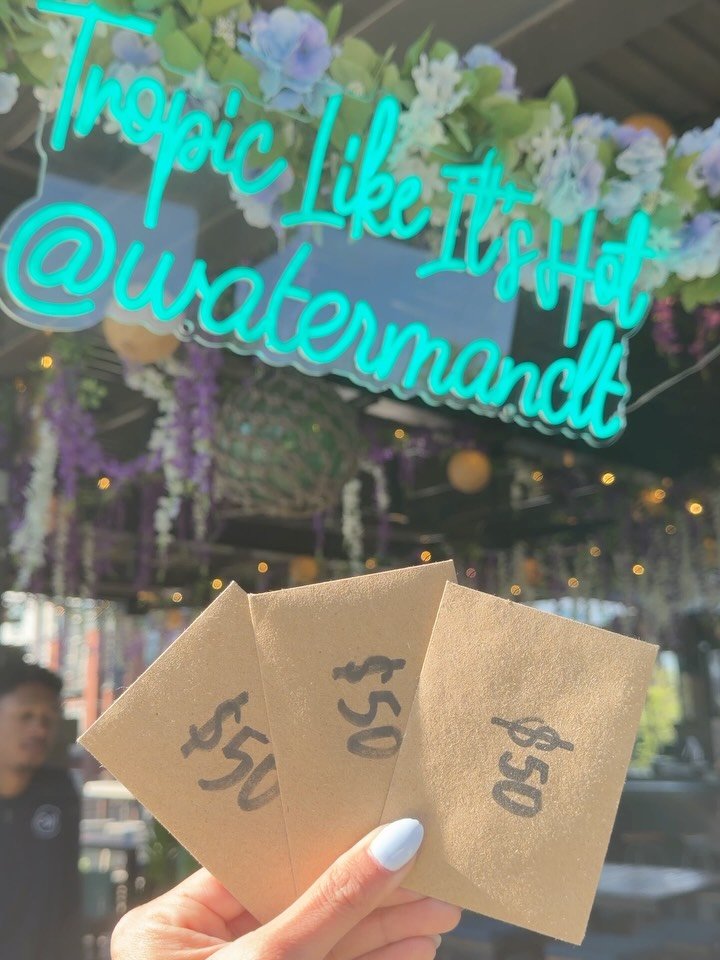 Tropic Like It's Hot
@watermandt
$50
$50
$50